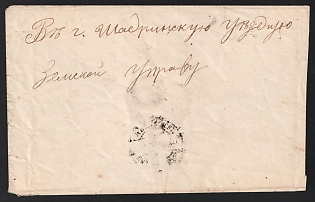 Въ г. Шадринскую Уѣздную
Земскую Управу